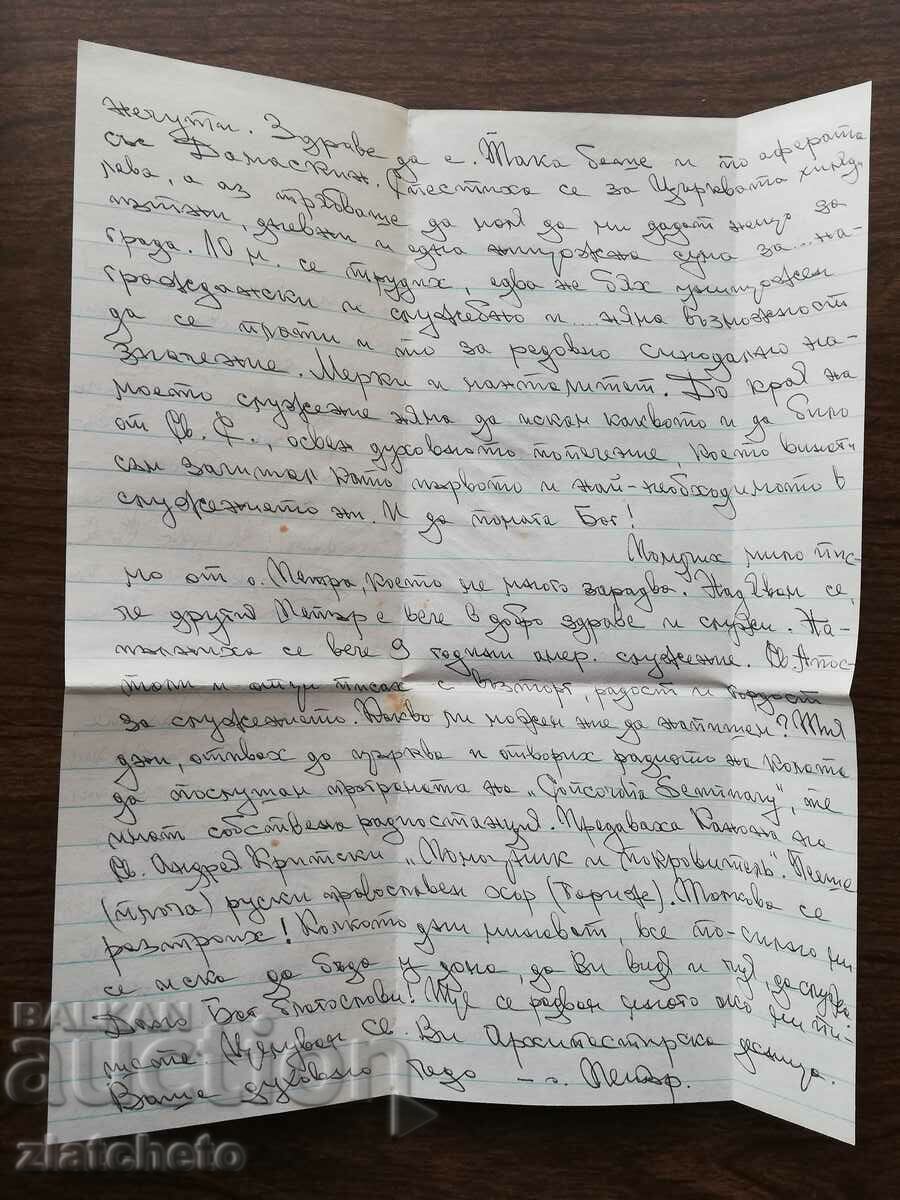 нечути. Здраве да е. Така беше и по аферата
със Дамаскин. Спестиха се за Църквата хиляди
лева, а аз трябваше да моля да ми дадат нещо за
пътни, дневни и една нищожна сума за... на-
града. 10 м. се трудих, едва не бях унищожен
граждански и служебно и .... няма възможност
да се прати и то за редовно синодално на-
значение. Мерки и манталитет. До края на
моето служение няма да искам каквото и да било
от Св. С., освен духовното попечение, което винаги
съм зачитал като първото и най-необходимото в
служението ни. И да помага Бог!
Получих мило пис-
мо от о. Петра, което ме много зарадва. Надявам се,
че другия Петър е вече в добро здраве и служи. На-
пълниха се вече 9 години амер. служение. Св. Апос-
толи и отци писах с възторг, радост и гордост
за служението. Какво ли можем ние да напишем? Тия
дни, отивах до църква и отворих радиото на колата
да послушам програмата на „ ", те
имат собствена радиостанция. Предаваха Канона на
Св. Андрей Критски „Помощник и покровитель". Пееше
(плоча) руски православен хор (Париж). Толкова се
разтроих! Колкото дни минават, все по-силно ми
се иска да бъда у дома, да Ви видя и чуя, да служа.
Дано Бог благослови! Ще се радвам много ако ми пи-
шете. Целувам се. Ви Архипастирска десница.
Ваше духовно чедо – о. Петър.
BALKAN
auction
zlatcheto